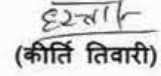 (कीर्ति तिवारी)